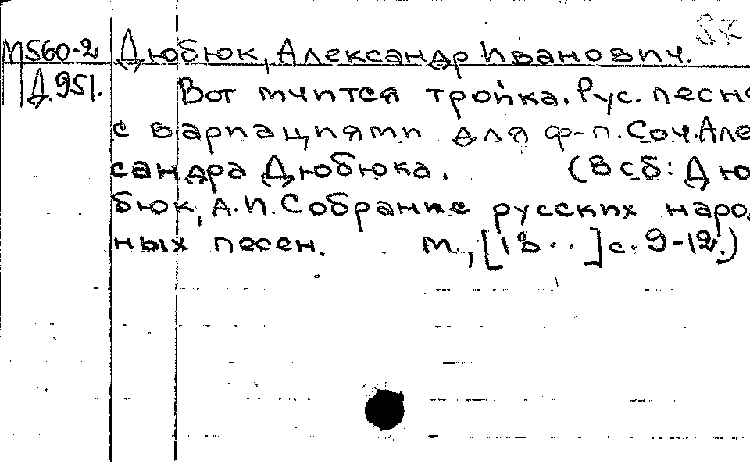 М560-2 Дюбюк, Александр Иванович.
Д.951. Вот мчится тройка. Рус. песня
с вариациями для ф-п. Соч. Але
сандра Дюбюка. (В сб: Дю
бюк, А.И. Собрание русских народ
ных песен. М., [18..] с. 9-12.)